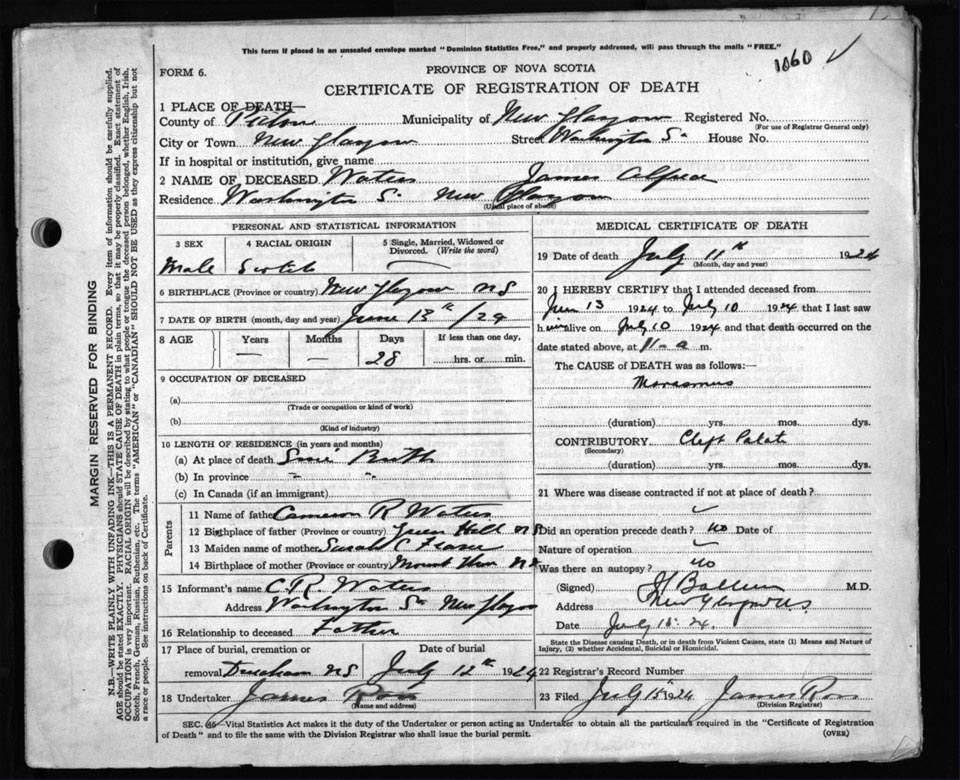 This form if placed in an unsealed envelope marked "Dominion Statistics Free," and properly addressed, will pass through the mails "FREE."
1060 ✓
FORM 6.
PROVINCE OF NOVA SCOTIA
CERTIFICATE OF REGISTRATION OF DEATH
1 PLACE OF DEATH—
County of Pictou Municipality of New Glasgow Registered No.
(For use of Registrar General only)
City or Town New Glasgow Street Washington St House No.
If in hospital or institution, give name
2 NAME OF DECEASED Waters James Alfred
Residence Washington St New Glasgow
(Usual place of abode)
PERSONAL AND STATISTICAL INFORMATION
3 SEX 4 RACIAL ORIGIN 5 Single, Married, Widowed or Divorced. (Write the word)
Male Scotch —
6 BIRTHPLACE (Province or country) New Glasgow NS
7 DATE OF BIRTH (month, day and year) June 13th /24
8 AGE Years Months Days If less than one day,
— — 28 hrs. or min.
9 OCCUPATION OF DECEASED
(a)
(Trade or occupation or kind of work)
(b)
(Kind of industry)
10 LENGTH OF RESIDENCE (in years and months)
(a) At place of death Since Birth
(b) In province " "
(c) In Canada (if an immigrant)
Parents
11 Name of father Cameron R Waters
12 Birthplace of father (Province or country) Green Hill NS
13 Maiden name of mother Sarah C Fraser
14 Birthplace of mother (Province or country) Mount Thom NS
15 Informant's name C.R. Waters
Address Washington St New Glasgow
16 Relationship to deceased Father
17 Place of burial, cremation or removal Durham NS Date of burial July 12th 1924
18 Undertaker James Ross
(Name and address)
MEDICAL CERTIFICATE OF DEATH
19 Date of death July 11th 1924
(Month, day and year)
20 I HEREBY CERTIFY that I attended deceased from
June 13 1924 to July 10 1924 that I last saw
him alive on July 10 1924 and that death occurred on
date stated above, at 11-a m.
The CAUSE of DEATH was as follows:—
Marasmus
(duration) yrs. mos. dys.
CONTRIBUTORY Cleft Palate
(Secondary)
(duration) yrs. mos. dys.
21 Where was disease contracted if not at place of death?
✓
Did an operation precede death? no Date of
Nature of operation ✓
Was there an autopsy? no
(Signed) M.D.
Address New Glasgow NS
Date July 15. 24.
State the Disease causing Death, or in death from Violent Causes, state (1) Means and Nature of
Injury, (2) whether Accidental, Suicidal or Homicidal.
22 Registrar's Record Number
23 Filed July 15 1924 James Ross
(Division Registrar)
SEC. 46—Vital Statistics Act makes it the duty of the Undertaker or person acting as Undertaker to obtain all the particulars required in the "Certificate of Registration
of Death" and to file the same with the Division Registrar who shall issue the burial permit. (OVER)
MARGIN RESERVED FOR BINDING
N.B.—WRITE PLAINLY WITH UNFADING INK—THIS IS A PERMANENT RECORD. Every item of information should be carefully supplied.
AGE should be stated EXACTLY. PHYSICIANS should STATE CAUSE OF DEATH in plain terms, so that it may be properly classified. Exact statement of
OCCUPATION is very important. RACIAL ORIGIN will be described by stating to what people or tongue the deceased person belonged, whether English, Irish,
Scotch, French, German, Russian, Ruthenian, etc. The terms "AMERICAN" or "CANADIAN" SHOULD NOT BE USED as they express citizenship but not
a race or people. See instructions on back of Certificate.